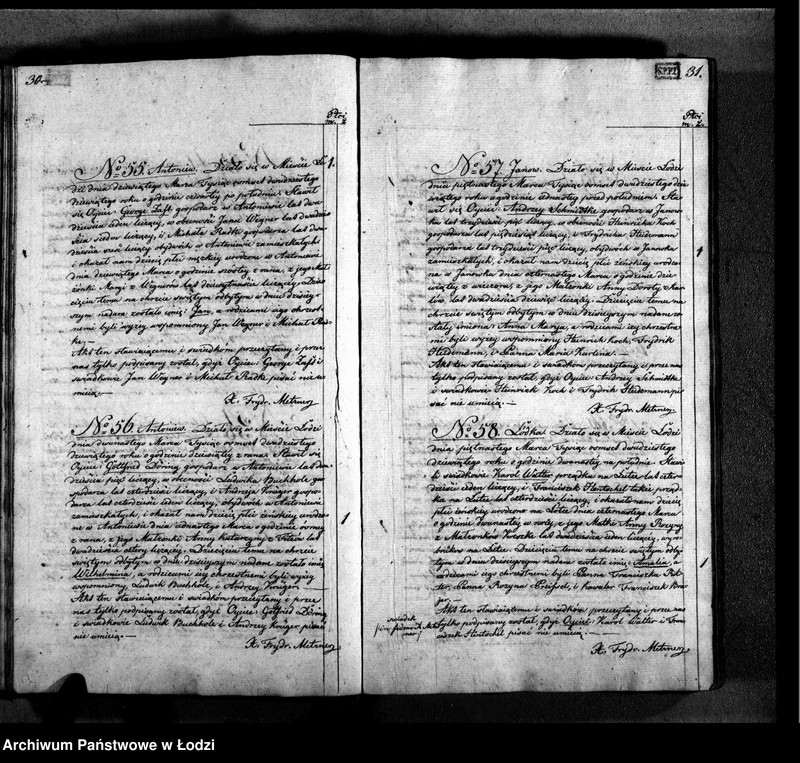 30.
Płci
m. ż.
No 55 Antoniew. Działo się w Mieście Ło 1.
dzi dnia dziewiątego Marca Tysiąc osmset dwudziestego
dziewiątego roku o godzinie czwartey po południu. Stawił
się Oyciec George Zaft gospodarz w Antoniewie lat dwa
dzieścia ieden liczący, w obecności Jana Wegner lat dwadzie
ścia siedm liczący, i Michała Radke gospodarza lat dwa
dzieścia liczący obydwóch w Antoniewie zamieszkałych
i okazał nam dziecię płci męzkiey urodzone w Antoniewie
dnia dziewiątego Marca o godzinie szóstey z rana, z jego Mał
żonki Maryi z Wegnerów lat dziewiętnaście liczącey. Dzie
cięciu temu na chrzcie świętym odbytym w dniu dzisiey
szym nadane zostało imię Jan, a rodzicami iego chrzest
nemi byli wyżey wspomniony Jan Wegner i Michał Rad
ke. —
Akt ten stawaiącemu i świadkom przeczytany i przez
nas tylko podpisany został, gdyż Oyciec George Zaft i
świadkowie Jan Wegner i Michał Radke pisać nie u
mieią. —
X. Frydr. Metzner
No 56 Antoniew. Działo się w Mieście Łodzi
dnia dwunastego Marca Tysiąc osmset dwudziestego
dziewiątego roku o godzinie dziesiątey z rana. Stawił się
Oyciec Gottfried Döring gospodarz w Antoniewie lat dwa
dzieścia pięć liczący, w obecności Ludwika Buchholz go
spodarza lat czterdzieści liczący, i Andrzeja Krüger gospo
darza lat czterdzieści ieden liczący, obydwóch w Antoniewie
zamieszkałych, i okazał nam dziecię płci żeńskiey urodzo
ne w Antoniewie dnia iedenastego Marca o godzinie ósmey
z rana, z jego Małżonki Anny Katarzyny z lat
dwadzieścia cztery liczącey. Dziecięciu temu na chrzcie
świętym odbytym w dniu dzisieyszym nadane zostało imię
Wilhelmina, a rodzicami iey chrzestnemi byli wyżey
wspomniony, Ludwik Buchholz i Andrzey Krüger.
Akt ten stawaiącemu i świadkom przeczytany i przez
nas tylko podpisany został, gdyż Oyciec Gottfried Döring
i świadkowie Ludwik Buchholz i Andrzey Krüger pisać
nie umieią. —
X. Frydr. Metzner
1
31.
Płci
m. ż.
No 57 Janow. Działo się w Mieście Łodzi
dnia piętnastego Marca Tysiąc osmset dwudziestego dzie
wiątego roku o godzinie iedenastey przed południem. Sta
wił się Oyciec Andrzey Schmittke gospodarz w Janow
ku lat trzydzieści pięć liczący, w obecności Heinricha Koch
gospodarza lat pięćdziesiąt liczący, i Frydricha Hedemann
gospodarza lat trzydzieści pięć liczący, obydwóch w Janowku
zamieszkałych, i okazał nam dziecię płci żeńskiey urodzo
ne w Janowku dnia czternastego Marca o godzinie dzie
wiątey z wieczora, z jego Małżonki Anny Doroty
lat dwadzieścia dziewięć liczącey. Dziecięciu temu na
chrzcie świętym odbytym w dniu dzisieyszym nadane zo
stały imiona: Anna Marya, a rodzicami iey chrzestne
mi byli wyżey wspomniony Heinrich Koch, Frydrik
Hedemann, i Panna Maria Karlina. —
Akt ten stawaiącemu i świadkom przeczytany i przez nas
tylko podpisany został, gdyż Oyciec Andrzey Schmittke
i świadkowie Heinrich Koch i Frydrik Hedemann pi
sać nie umieią. —
X. Frydr. Metzner
1
No 58. Łódka. Działo się w Mieście Łodzi
dnia piętnastego Marca Tysiąc osmset dwudziestego
dziewiątego roku o godzinie dwunastey na południe. Stawi
li świadkowie Karol Walter prządka na Łodce lat czter
dzieści ieden liczący, i Franciszek Hentschel także prząd
ka na Łodce lat czterdzieści liczący, i okazał nam dziecię
płci żeńskiey urodzone na Łodce dnia czternastego Marca
o godzinie dwunastey w nocy, z jego Matki Anny Rozyny
z Małżonków lat dwadzieścia ieden liczącey, wyro
bników na Łodce. Dziecięciu temu na chrzcie świętym odby
tym w dniu dzisieyszym nadane zostało imię: Amalia, a
rodzicami iey chrzestnemi byli: Panna Franciszka
Panna Rozyna i kawaler Franciszek
Akt ten stawaiącemu i świadkom przeczytany i przez nas
świadek
tylko podpisany został, gdyż Oyciec Karol Walter i Fran
ciszek Hentschel pisać nie umieią. —
X. Frydr. Metzner
1
Archiwum Państwowe w Łodzi